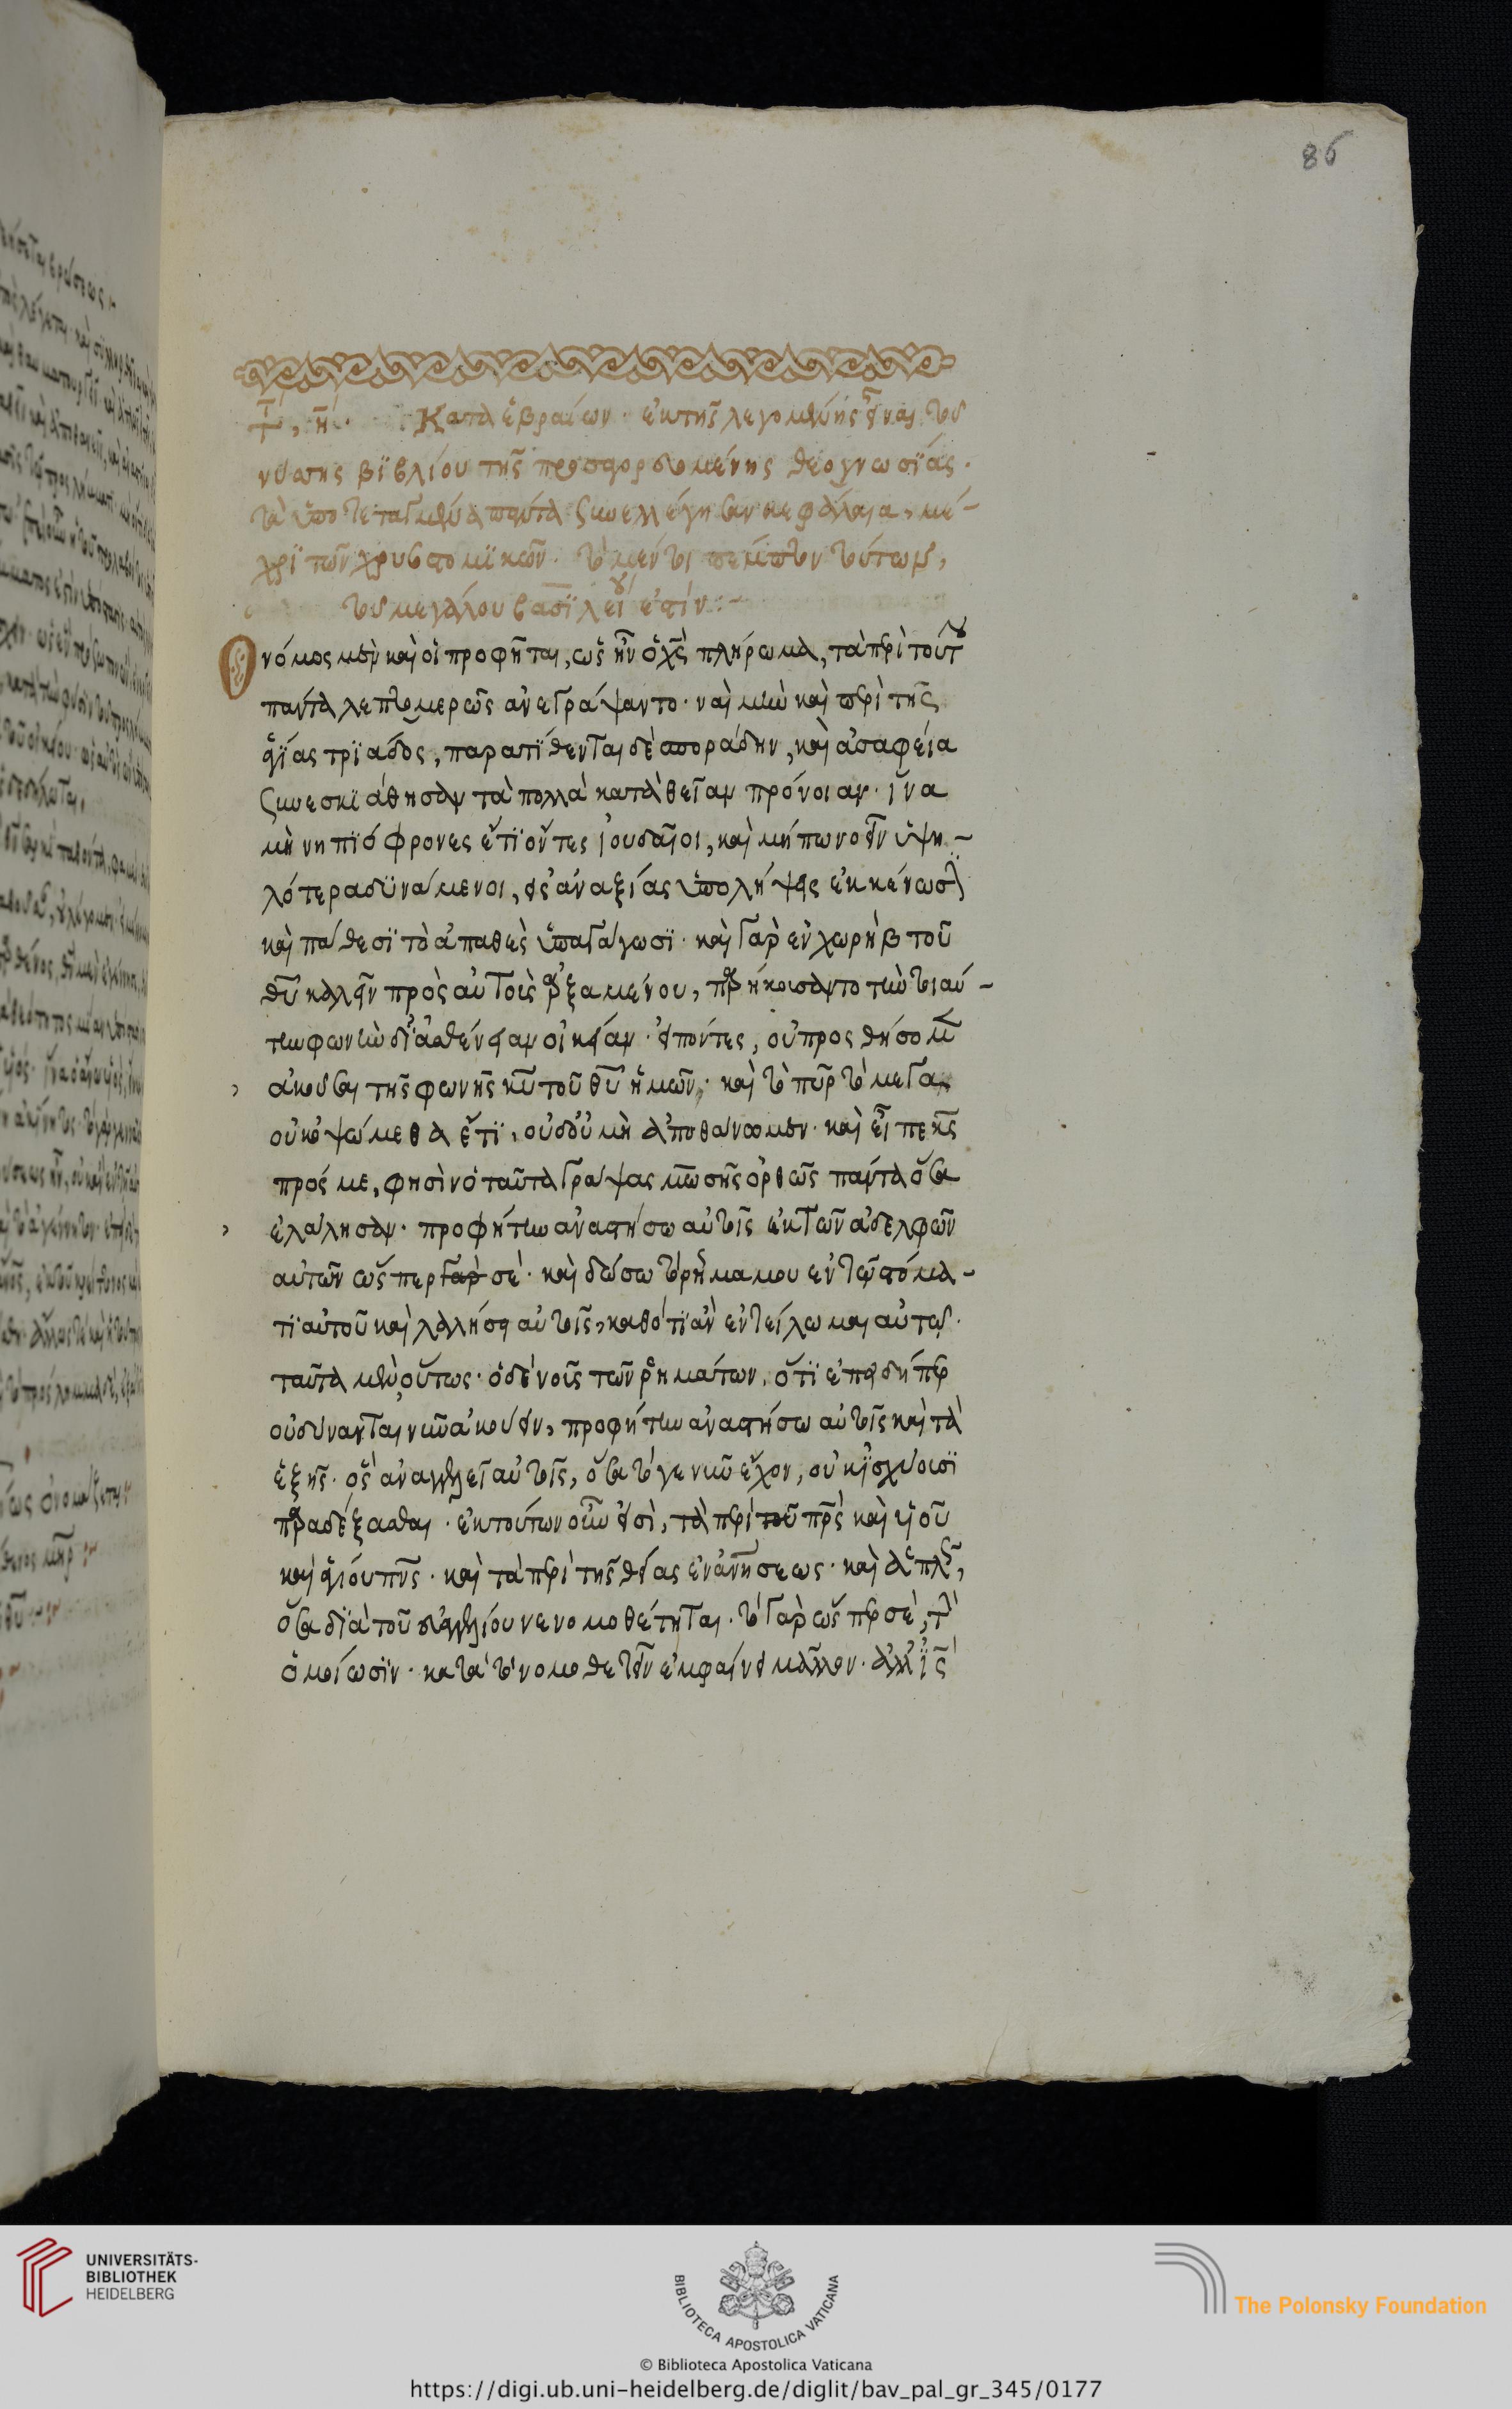 86
Κατὰ ἑβραίων· ἐκ τῆς λεγομένης εἶναι τοῦ
νύσσης βϊβλίου τῆς προσαγορευομένης θεογνωσίας·
τὰ ὑποτεταγμένα πάντα συνελέγησαν κεφάλαια, μέ-
χρϊ τῶν
τοῦ μεγάλου βασϊλείου ἐστίν:-
Ὁ νόμος μὲν καὶ οἱ προφῆται, ὡς ἦν ὁ χς πλήρωμα, τὰ περὶ τούτου
πάντα λεπτομερῶς ἀνεγράψαντο· ναὶ μὴν καὶ περὶ τῆς
ἁγίας τρϊάδος, παρατίθενται δὲ σποράδην, καὶ ἀσαφεία
συνεσκϊάσθησαν τὰ πολλὰ κατὰ θείαν πρόνοιαν· ἵνα
μὴ νηπϊόφρονες ἔτϊ ὄντες ἰουδαῖοι, καὶ μήπω νοεῖν ὑψη-
λότερα δϋνάμενοι, εἰς ἀναξίας ὑπολήψεις ἐκκένωσ
καὶ πάθεσϊ τὸ ἀπαθὲς ὑπαγάγωσϊ· καὶ γὰρ ἐν χωρὴβ τοῦ
θυ λαλεῖν πρὸς αὐτοὺς ἀρξαμένου, παρῃτήσαντο τὴν τοιαύ-
την φωνὴν δϊ ἀσθένειαν οἰκείαν· εἰπόντες, οὐ προσθήσομεν
ἀκοῦσαι τῆς φωνῆς κυ τοῦ θυ ἡμῶν· καὶ τὸ πῦρ τὸ μέγα
οὐκ ὀψώμεθα ἔτϊ, οὐδ' οὐ μὴ ἀποθάνωμεν· καὶ εἶπε κς
πρός με, φησὶν ὁ ταῦτα γράψας μωσῆς ὀρθῶς πάντα ὅσα
ἐλάλησαν· προφήτην ἀναστήσω αὐτοῖς ἐκ τῶν ἀδελφῶν
αὐτῶν ὥσπερ γὰρ σέ· καὶ δώσω τὸ ῥῆμα μου ἐν τῷ στόμα-
τϊ αὐτοῦ καὶ λαλήσει αὐτοῖς, καθότϊ ἂν ἐντείλωμαι αὐτῷ·
ταῦτα μὲν οὕτως· ὁ δὲ νοῦς τῶν ῥημάτων, ὅτϊ ἐπειδήπερ
οὐ δύνανται νῦν ἀκούειν, προφήτην ἀναστήσω αὐτοῖς καὶ τὰ
ἑξῆς· ὃς ἀναγγελεῖ αὐτοῖς, ὅσα τό γε νῦν ἔχον, οὐκ ἰσχύουσϊ
παραδέξασθαι· ἐκ τούτων οὖν εἰσὶ, τὰ περὶ τοῦ πρς καὶ υἱοῦ
καὶ ἁγίου πνς· καὶ τὰ περὶ τῆς θείας ἐνανθρωπήσεως· καὶ ἁπλῶς,
ὅσα δϊὰ τοῦ εὐαγγελίου νενομοθέτηται· τὸ γὰρ ὥσπερ σὲ, τὴν
ὁμοίωσϊν· κατὰ τὸ νομοθετεῖν ἐμφαίνει μᾶλλον·
UNIVERSITÄTS-
BIBLIOTHEK
HEIDELBERG
BIBLIOTECA APOSTOLICA VATICANA
The Polonsky Foundation
© Biblioteca Apostolica Vaticana
https://digi.ub.uni-heidelberg.de/diglit/bav_pal_gr_345/0177